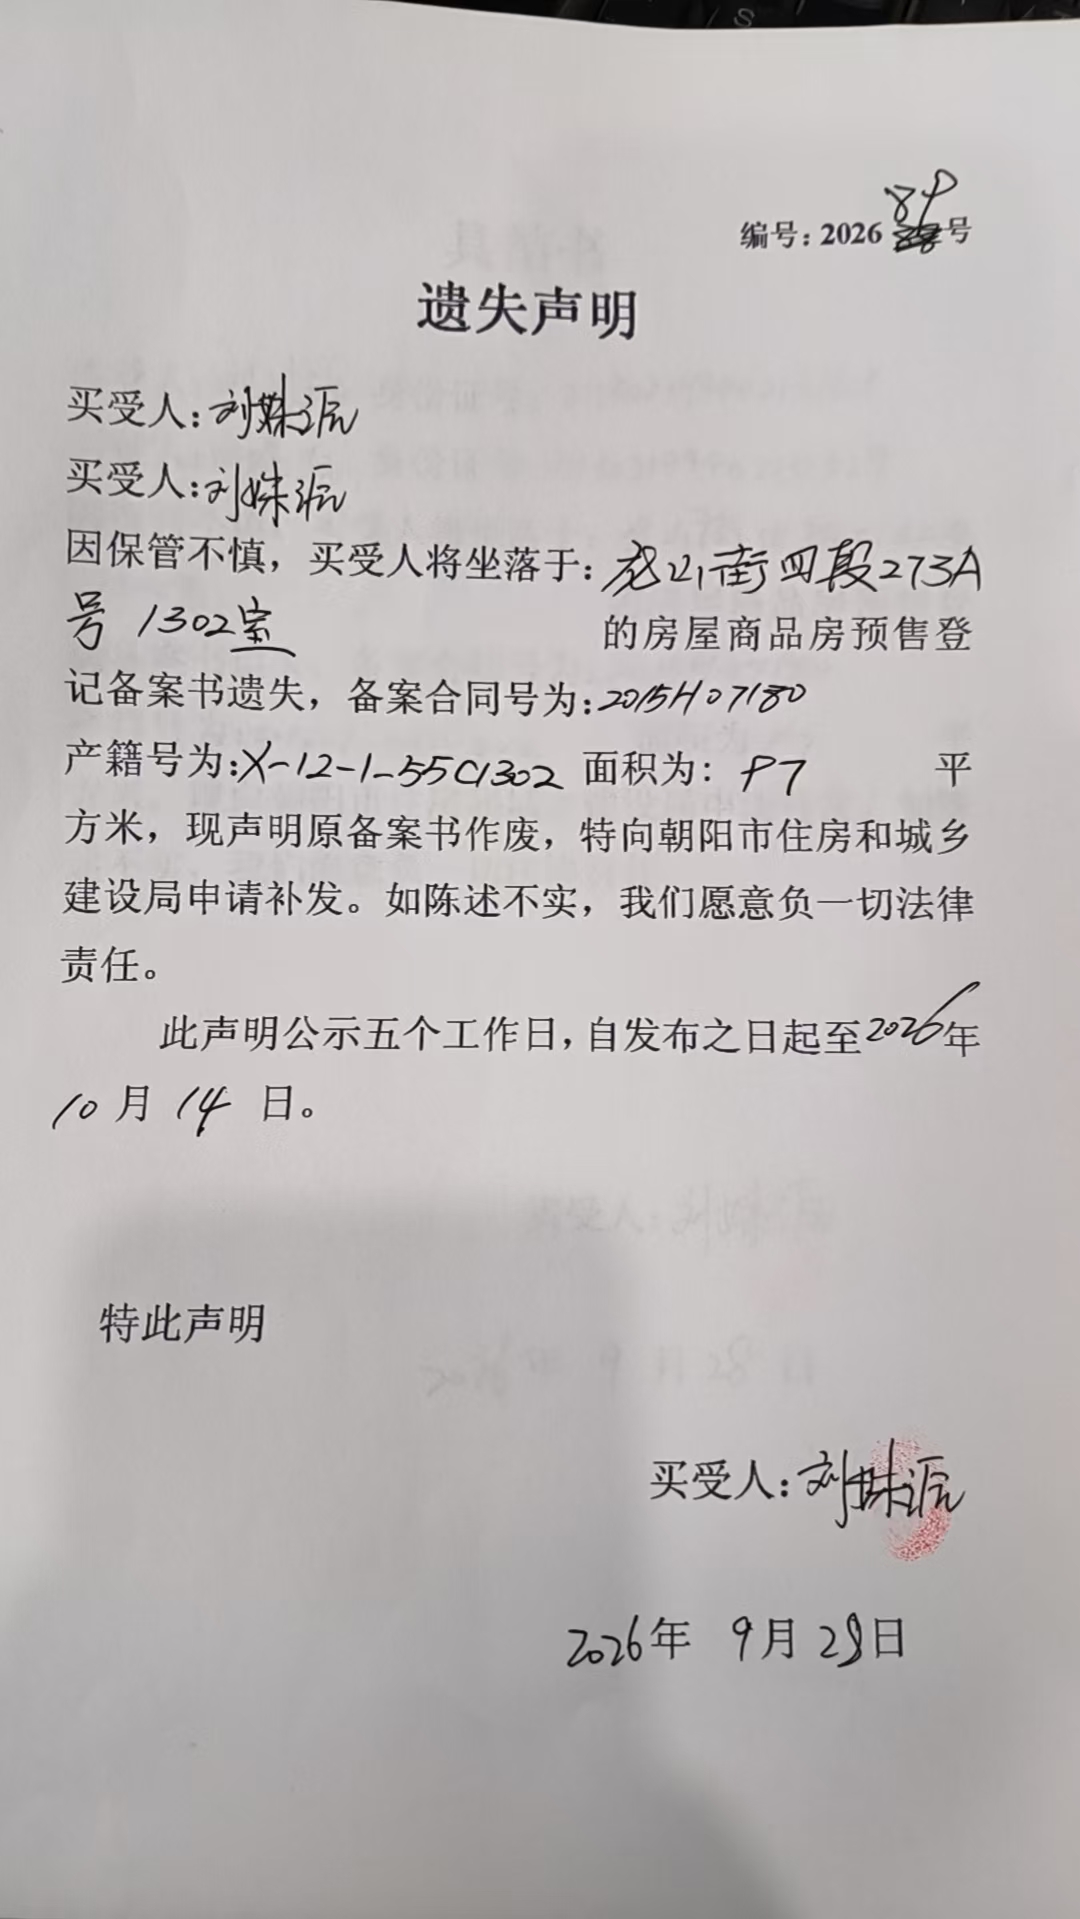 编号：2026 89号
遗失声明
买受人：刘姝沅
买受人：刘姝沅
因保管不慎，买受人将坐落于：龙山街四段273A
号 1302室 的房屋商品房预售登
记备案书遗失，备案合同号为：2015H07180
产籍号为：X-12-1-55C1302 面积为：97 平
方米，现声明原备案书作废，特向朝阳市住房和城乡
建设局申请补发。如陈述不实，我们愿意负一切法律
责任。
此声明公示五个工作日，自发布之日起至2026年
10月14日。
特此声明
买受人：刘姝沅
2026年 9月28日